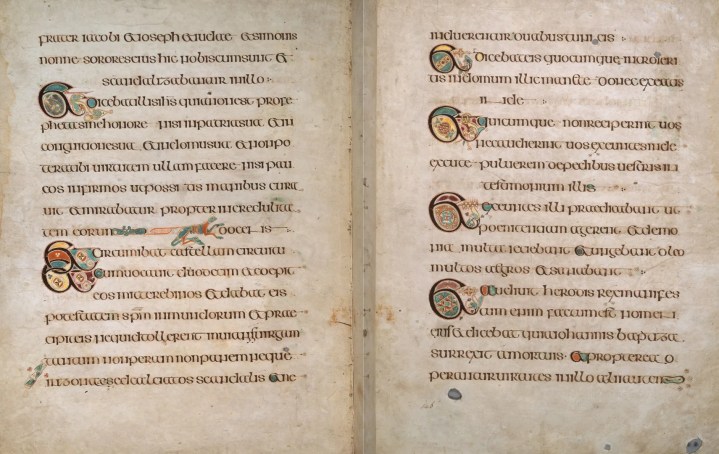 frater iacobi & ioseph & iudae & simonis
nonne sorores eius hic nobiscum sunt &
scandalizabantur in illo
Et dicebat illis ihs quia non est profe
pheta sine honore nisi in patria sua & in
cognatione sua & in domo sua & non po
terat ibi uirtutem ullam facere nisi pau
cos infirmos manibus cura
uit & mirabatur propter incredulita
tem eorum
Et circumibat castellam circuitu
duodecim & coepit
eos mittere binos & dabat eis
potestatem inmundorum & prae
cipit eis ne quid tollerent uirgam
tantum non peram non panem neque
calciatos scandalis & ne
induerentur duabus tunicis
Et dicebat eis quocumque introieri
tis in domum illic manete donec exeatis
inde
Et quicumque non reciperint uos
nec audierint uos exeuntes inde
puluerem de pedibus uestris in
testimonium illis
Et exeuntes illi praedicabant ut
poenitentiam agerent & demo
nia multa & ungebant oleo
multos & sanabant
Et audiuit herodis rex manifes
tum enim factum est nomen
eius & dicebat quia iohannis baptista
surrexit a mortuis & propterea o
perantur uirtutes in illo alii autem